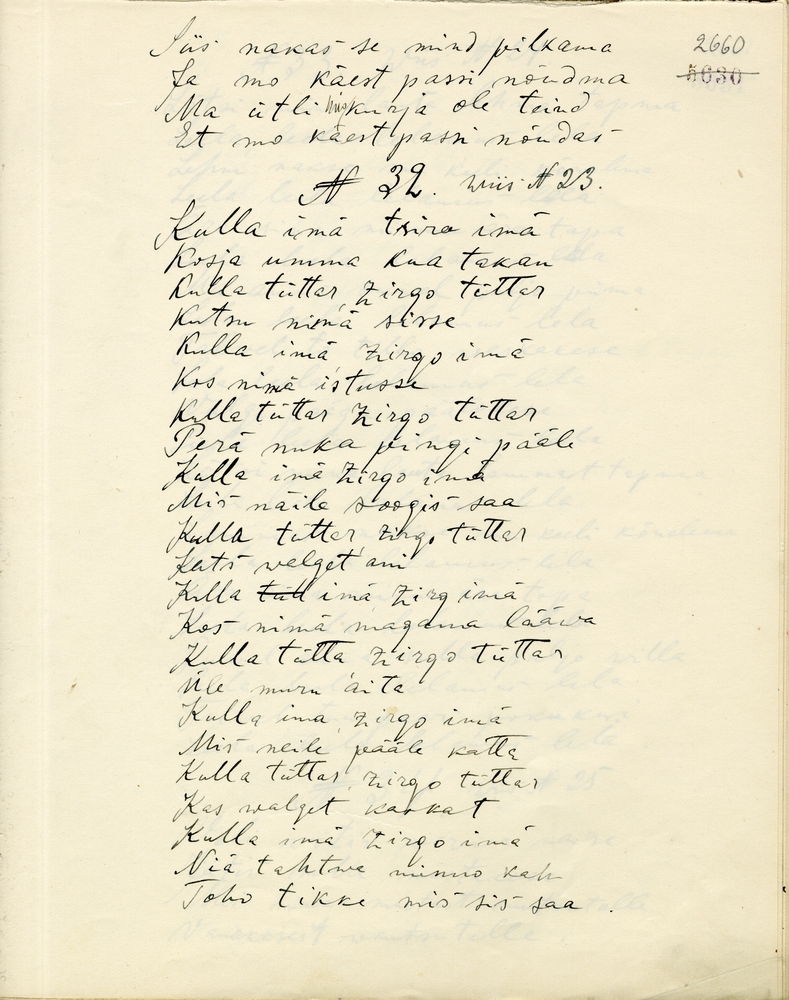 Siis nakas se mind pilkama
2660
5630
Ja mo käest passi nõudma
Ma ütli mis kurja ole teind
Et mo käest passi nõudas
№ 32. wiis № 23.
Kulla imä tsiro imä
Kosja umma kua takan
Kulla tüttar, zirgo tüttar
Kutsu nimä sisse
Kulla imä zirgo imä
Kos nimä istusse
Kulla tüttar zirgo tüttar
Perä nuka pingi pääle
Kulla imä zirgo imä
Mis näile soogis saa
Kulla tüttar zirgo tüttar
Kats walget ani
Kulla imä, zirg imä
Kos nimä magama lääwa
Kulla tütta zirgo tüttar
Üle muru aita
Kulla ima, zirgo imä
Mis neile pääle katta
Kulla tüttar, zirgo tüttar
Kas walget kaskat
Kulla imä zirgo imä
Niä tahtwa minno kah
Toho tikke mis sis saa.